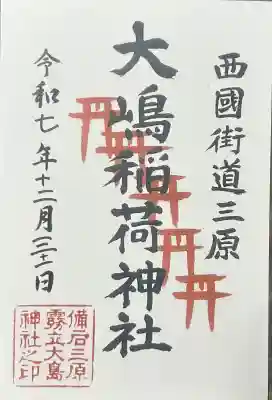 西國街道三原
大嶋稲荷神社
令和七年十二月三十一日
備后三原
霧立大島
神社之印